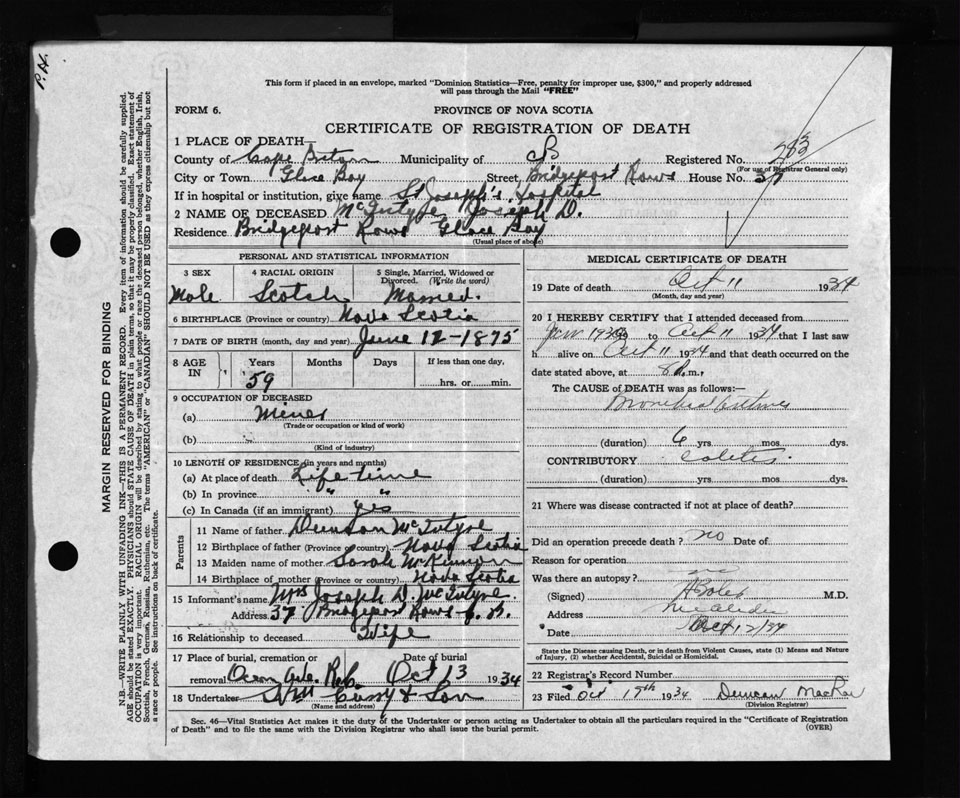 P.H.
This form if placed in an envelope, marked "Dominion Statistics—Free, penalty for improper use, $300," and properly addressed
will pass through the Mail "FREE"
FORM 6. PROVINCE OF NOVA SCOTIA
CERTIFICATE OF REGISTRATION OF DEATH
1 PLACE OF DEATH—
County of Cape Breton Municipality of CB Registered No. 283
(For use of Registrar General only)
City or Town Glace Bay Street, Bridgeport Rows House No. 37
If in hospital or institution, give name St Joseph's Hospital
2 NAME OF DECEASED McIntyre, Joseph D.
Residence Bridgeport Rows Glace Bay
(Usual place of abode)
PERSONAL AND STATISTICAL INFORMATION
3 SEX 4 RACIAL ORIGIN 5 Single, Married, Widowed or
Divorced. (Write the word)
Male Scotch Married.
6 BIRTHPLACE (Province or country) Nova Scotia
7 DATE OF BIRTH (month, day and year) June 12-1875
8 AGE IN Years Months Days If less than one day,
59 hrs. or min.
9 OCCUPATION OF DECEASED
(a) Miner
(Trade or occupation or kind of work)
(b)
(Kind of industry)
10 LENGTH OF RESIDENCE (in years and months)
(a) At place of death Life time
(b) In province " "
(c) In Canada (if an immigrant) yes
Parents
11 Name of father Duncan McIntyre
12 Birthplace of father (Province or country) Nova Scotia
13 Maiden name of mother Sarah McKinnon
14 Birthplace of mother (Province or country) Nova Scotia
15 Informant's name Mrs Joseph D. McIntyre.
Address 37 Bridgeport Rows G.B.
16 Relationship to deceased Wife
17 Place of burial, cremation or Date of burial
removal Res. Oct 13 1934
18 Undertaker Curry & Son
(Name and address)
MEDICAL CERTIFICATE OF DEATH
19 Date of death Oct 11 1934
(Month, day and year)
20 I HEREBY CERTIFY that I attended deceased from
Jan 193 to Oct 11 1934 that I last saw
h alive on Oct 11 1934 and that death occurred on the
date stated above, at 8 m.
The CAUSE of DEATH was as follows:—
Bronchial Asthma
(duration) 6 yrs. mos. dys.
CONTRIBUTORY Colitis.
(duration) yrs. mos. dys.
21 Where was disease contracted if not at place of death?
Did an operation precede death? no Date of
Reason for operation
Was there an autopsy? no
(Signed) M.D.
Address
Date Oct 12/34
State the Disease causing Death, or in death from Violent Causes, state (1) Means and Nature
of Injury, (2) whether Accidental, Suicidal or Homicidal.
22 Registrar's Record Number
23 Filed Oct 19th 1934 Duncan MacRae
(Division Registrar)
Sec. 46—Vital Statistics Act makes it the duty of the Undertaker or person acting as Undertaker to obtain all the particulars required in the "Certificate of Registration
of Death" and to file the same with the Division Registrar who shall issue the burial permit. (OVER)
MARGIN RESERVED FOR BINDING
N.B.—WRITE PLAINLY WITH UNFADING INK—THIS IS A PERMANENT RECORD. Every item of information should be carefully supplied.
AGE should be stated EXACTLY. PHYSICIANS should STATE CAUSE OF DEATH in plain terms, so that it may be properly classified. Exact statement of
OCCUPATION is very important. RACIAL ORIGIN will be described by stating to what people or race the deceased person belonged, whether English, Irish,
Scottish, French, German, Russian, Ruthenian, etc. The terms "AMERICAN" or "CANADIAN" SHOULD NOT BE USED as they express citizenship but not
a race or people. See instructions on back of certificate.